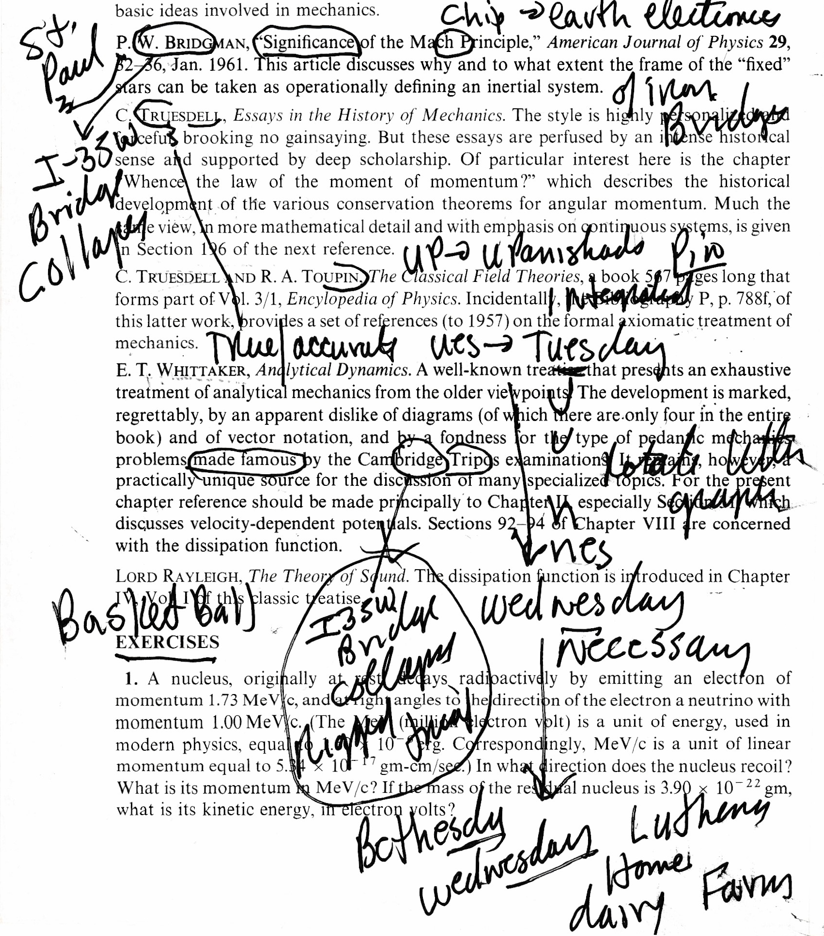 basic ideas involved in mechanics.
chip → earth electronics
St.
Paul
P. W. BRIDGMAN, “Significance of the Mach Principle,” American Journal of Physics 29,
32–36, Jan. 1961. This article discusses why and to what extent the frame of the “fixed”
stars can be taken as operationally defining an inertial system.
of iron
Bridges
C. TRUESDELL, Essays in the History of Mechanics. The style is highly personalized and
forceful, brooking no gainsaying. But these essays are perfused by an intense historical
sense and supported by deep scholarship. Of particular interest here is the chapter
“Whence the law of the moment of momentum?” which describes the historical
development of the various conservation theorems for angular momentum. Much the
same view, in more mathematical detail and with emphasis on continuous systems, is given
in Section 196 of the next reference.
I-35W
Bridge
Collapse
UP → Upanishads
C. TRUESDELL AND R. A. TOUPIN, The Classical Field Theories, a book 567 pages long that
forms part of Vol. 3/1, Encylopedia of Physics. Incidentally, the Bibliography P, p. 788f, of
this latter work, provides a set of references (to 1957) on the formal axiomatic treatment of
mechanics.
True/accurate ues → Tuesday
E. T. WHITTAKER, Analytical Dynamics. A well-known treatise that presents an exhaustive
treatment of analytical mechanics from the older viewpoints. The development is marked,
regrettably, by an apparent dislike of diagrams (of which there are only four in the entire
book) and of vector notation, and by a fondness for the type of pedantic mechanics
problems made famous by the Cambridge Tripos examinations. It remains, however, a
practically unique source for the discussion of many specialized topics. For the present
chapter reference should be made principally to Chapter II, especially Section which
discusses velocity-dependent potentials. Sections 92–94 of Chapter VIII are concerned
with the dissipation function.
nes
LORD RAYLEIGH, The Theory of Sound. The dissipation function is introduced in Chapter
IV, Vol. I of this classic treatise.
Basket Ball
wednesday
Necessary
I35W
Bridge
collapse
Rigged
EXERCISES
1. A nucleus, originally at rest, decays radioactively by emitting an electron of
momentum 1.73 MeV/c, and at right angles to the direction of the electron a neutrino with
momentum 1.00 MeV/c. (The MeV (million electron volt) is a unit of energy, used in
modern physics, equal to 10⁻ erg. Correspondingly, MeV/c is a unit of linear
momentum equal to 5.34 × 10⁻¹⁷ gm-cm/sec.) In what direction does the nucleus recoil?
What is its momentum in MeV/c? If the mass of the residual nucleus is 3.90 × 10⁻²² gm,
what is its kinetic energy, in electron volts?
Bethesdy
wednesday
Home
dairy Farms